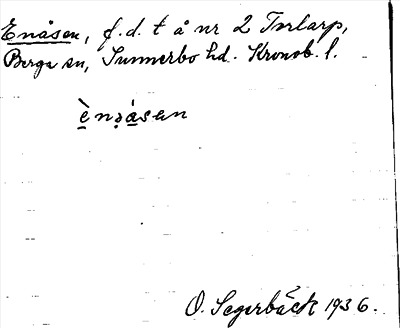 Enåsen, f.d. t å nr 2 Torlarp,
Berga sn, Sunnerbo hd. Kronob. l.
è̱nə̣á̱sen
O. Segerbäck 1936.